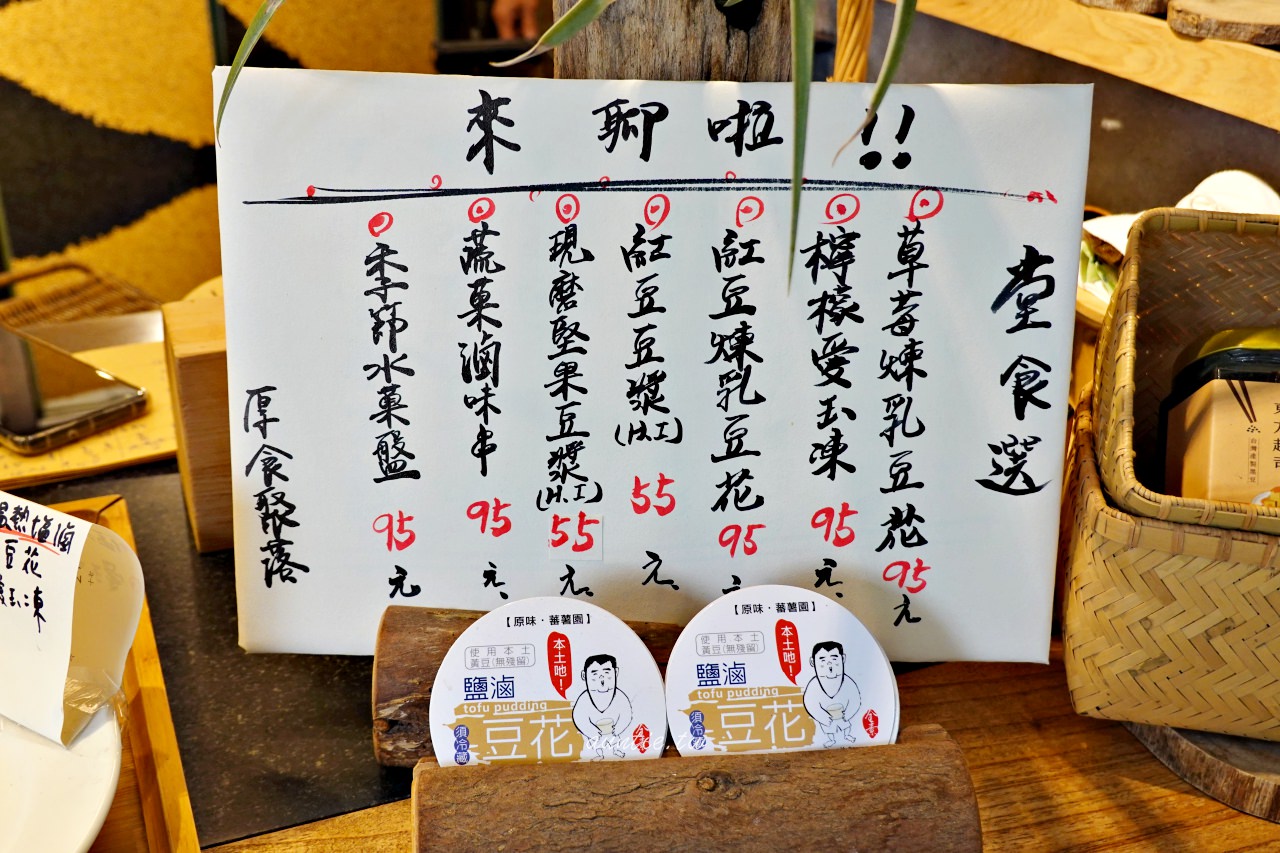 來聊啦!!
堂食選
草莓煉乳豆花95元
檸檬愛玉凍95元
紅豆煉乳豆花95元
紅豆豆漿(H.I)55元
現磨堅果豆漿(H.I)55元
蔬菓滷味串95元
季節水菓盤95元
厚食聚落
【原味·蕃薯園】
使用本土
黃豆(無殘留)
本土吔!
鹽滷
tofu pudding
豆花
須冷藏
全素
【原味·蕃薯園】
使用本土
黃豆(無殘留)
本土吔!
鹽滷
tofu pudding
豆花
須冷藏
全素
熱塩滷
豆花
玉凍
台灣產製黑豆